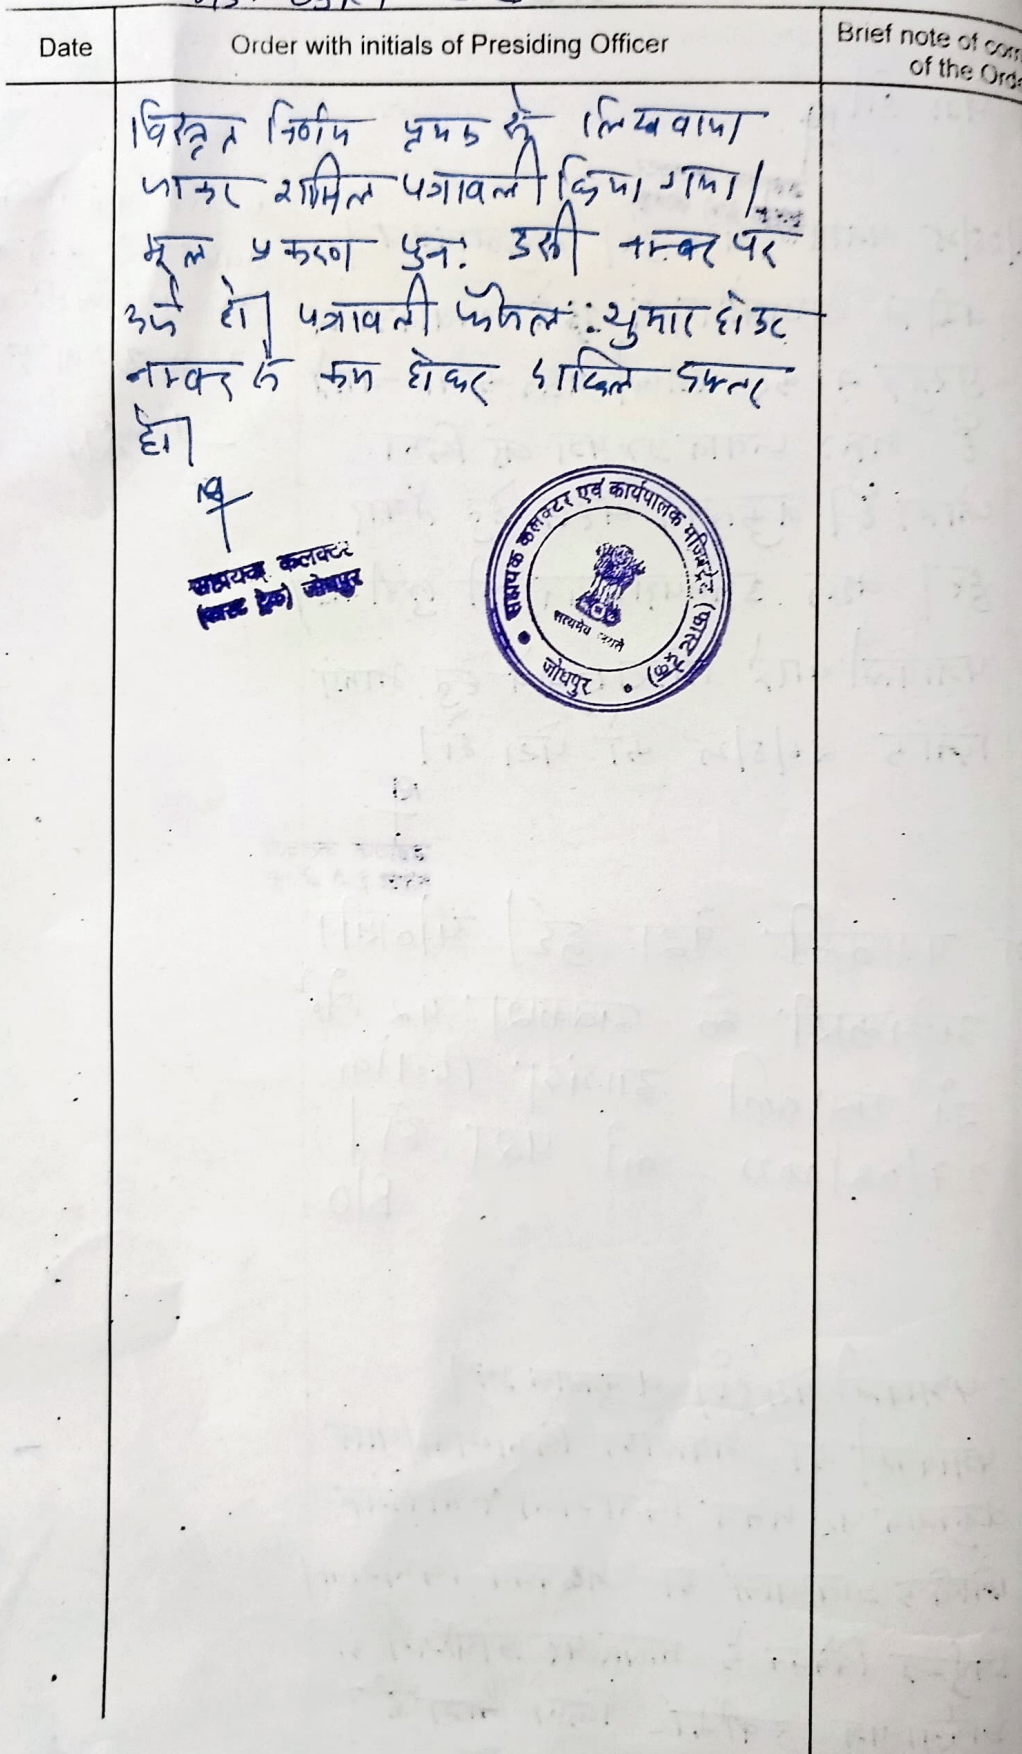 Date
Order with initials of Presiding Officer
Brief note of com
of the Orde
विस्तृत निर्णय पृथक से लिखवाया
जाकर शामिल पत्रावली किया गया।
मूल प्रकरण पुन: उसी नम्बर पर
दर्ज हो। पत्रावली फैसल शुमार होकर
नम्बर से कम होकर दाखिल दफ्तर
हो।
सहायक कलक्टर
(फास्ट ट्रेक) जोधपुर
सहायक कलक्टर एवं कार्यपालक मजिस्ट्रेट (फास्ट ट्रेक)
सत्यमेव जयते
जोधपुर